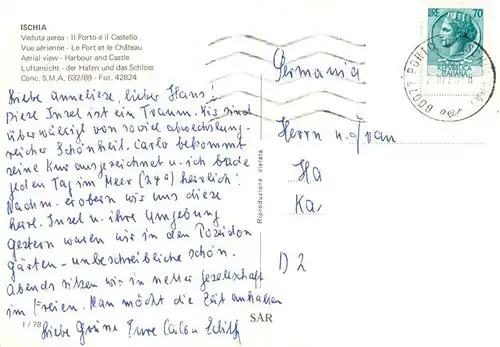 ISCHIA
Veduta aerea - Il Porto e il Castello
Vue aérienne - Le Port et le Château
Aerial view - Harbour and Castle
Luftansicht - der Hafen und das Schloss
Conc. S.M.A. 632/69 - Fot. 42824
Liebe Anneliese, lieber Hans!
Diese Insel ist ein Traum. Wir sind
überwältigt von soviel abwechslung-
reicher Schönheit. Carlo bekommt
seine Kur ausgezeichnet u. ich bade
jeden Tag im Meer (24°) herrlich!
Nachm. erobern wir uns diese
herrl. Insel u. ihre Umgebung
gestern waren wir in den Poseidon
Gärten - unbeschreibliche schön.
Abends sitzen wir in netter Gesellschaft
im Freien. Man möcht die Zeit anhalten
Liebe Grüße Eure Carlo u. Edith
1/78
SAR
Riproduzione Vietata
Germania
Herrn u. Frau
Ha
Ka
D 2
LIRE 70
ITALIANA
80077 PORTO